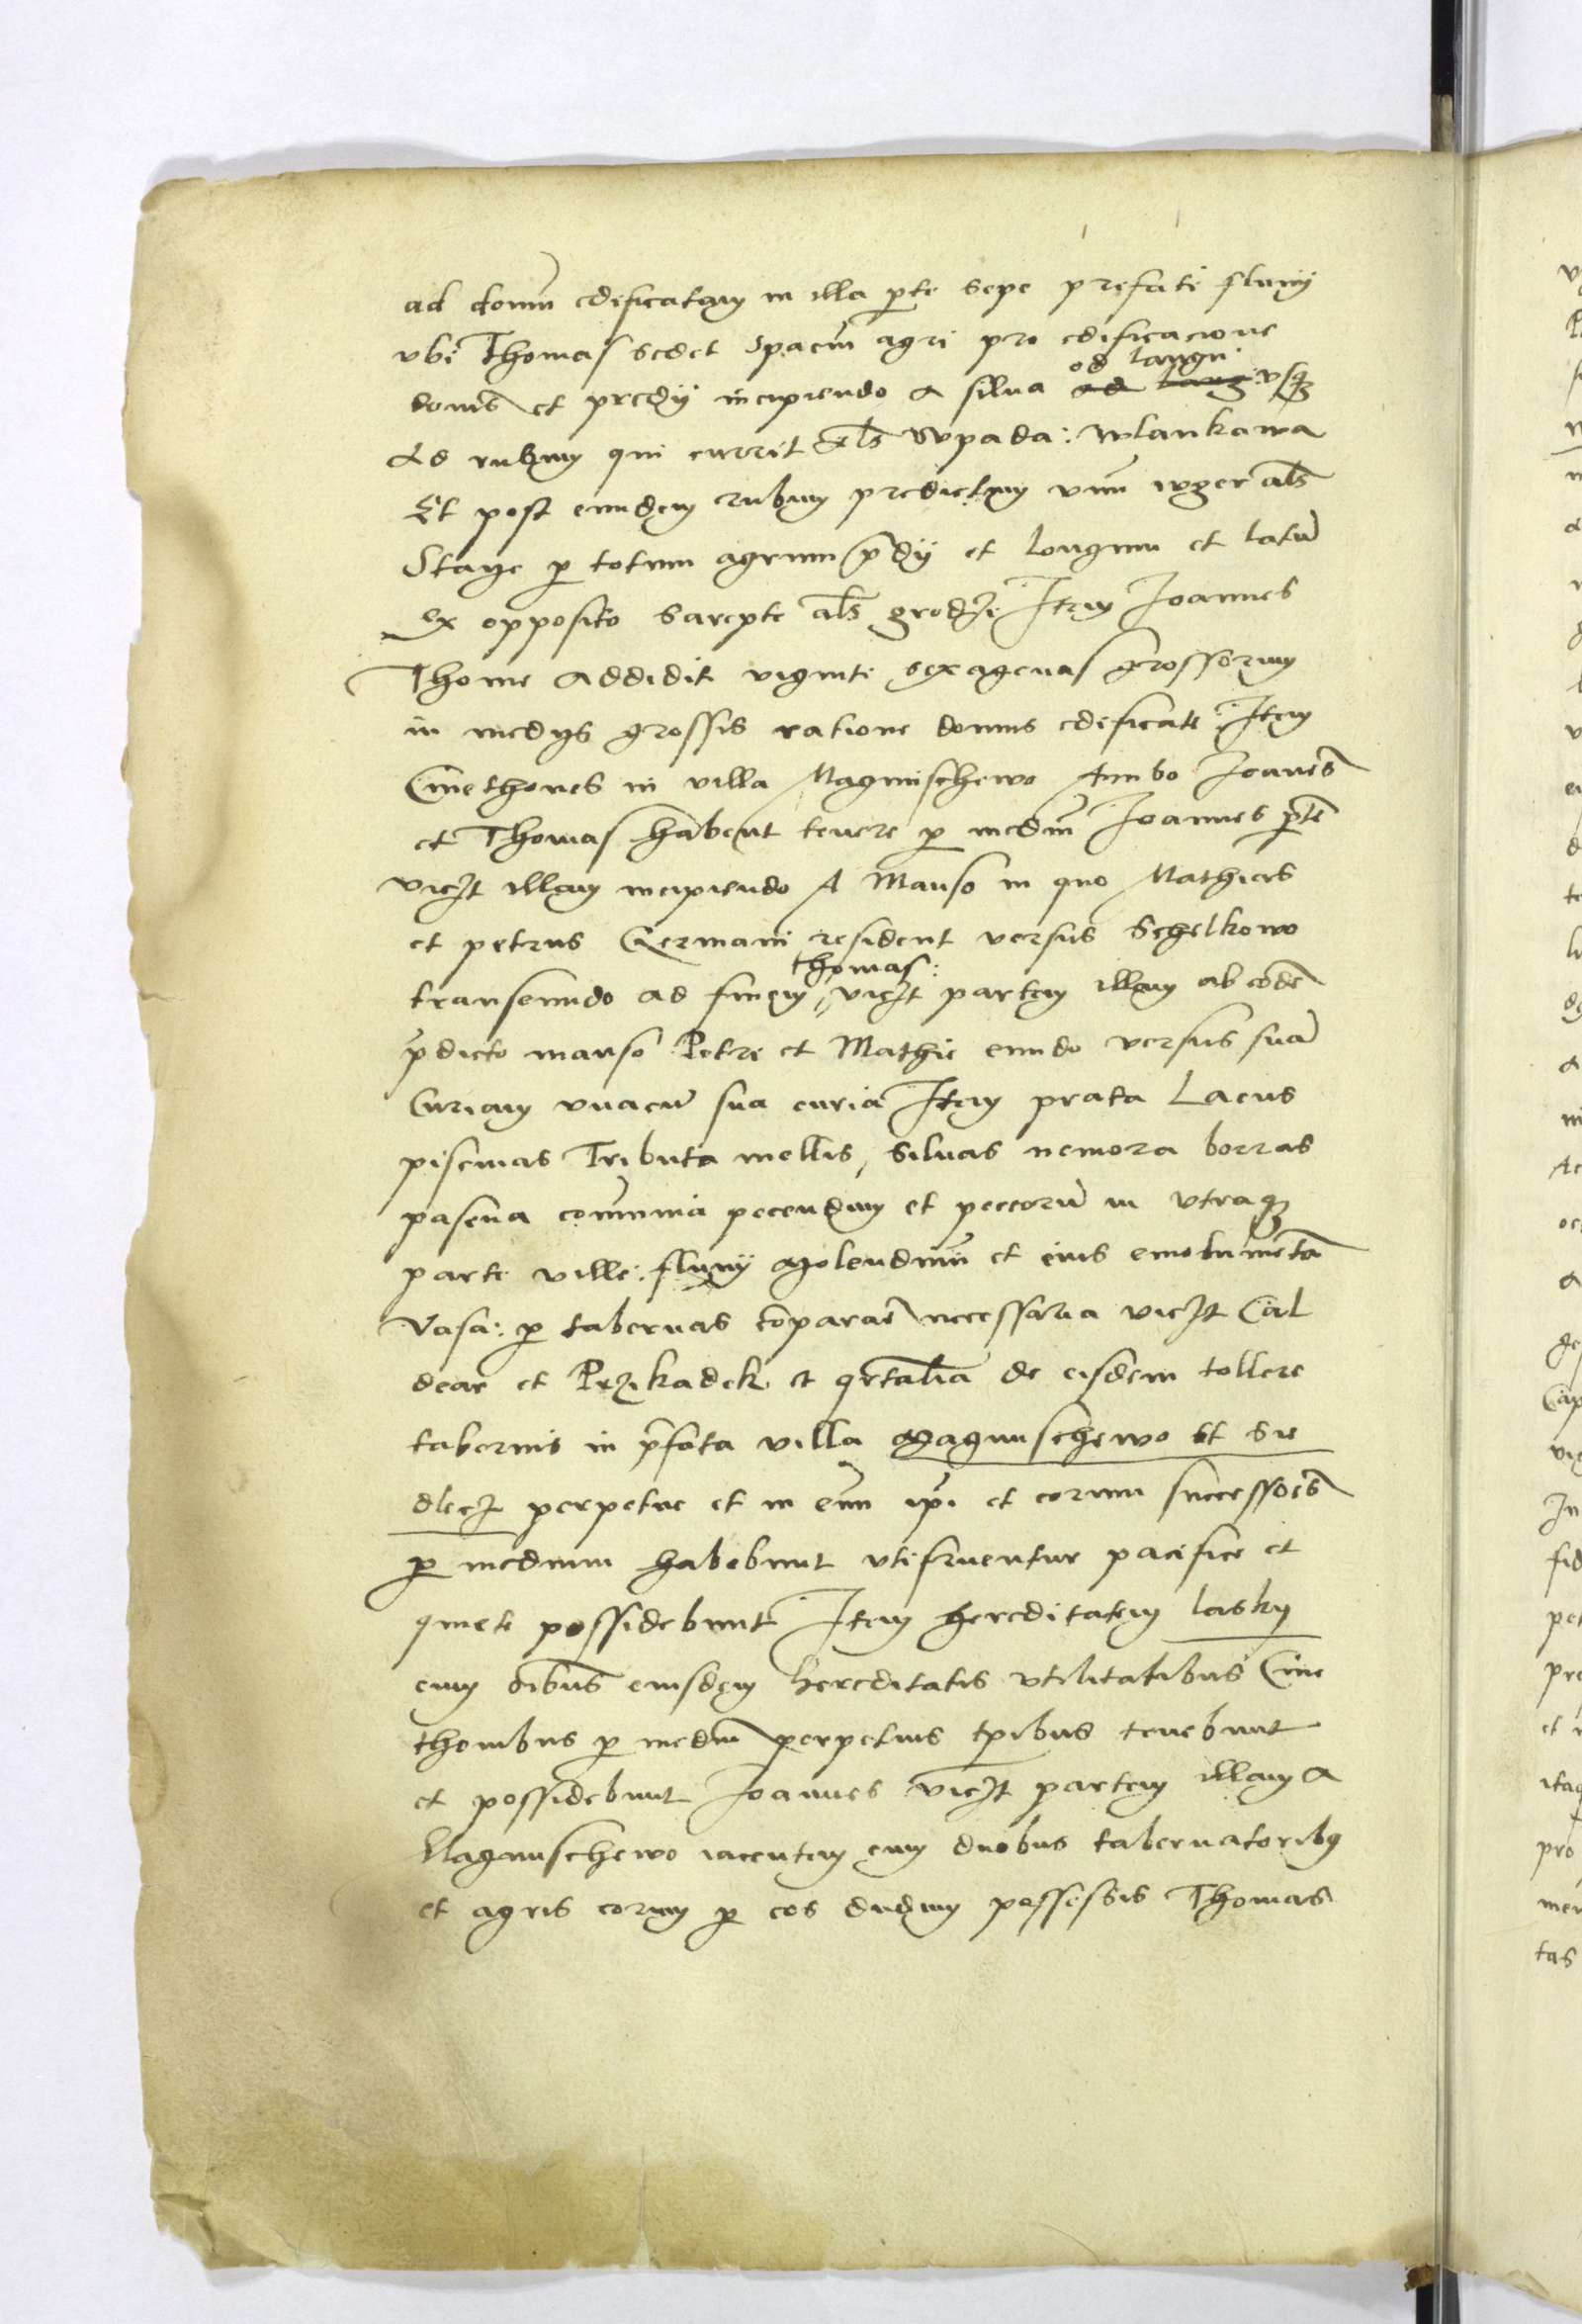 ad domū edificatam in illa p̄te sepe prefati fluvij
vbi Thomas sedet spaciū agri pro edificacione
domus et predij incipiendo a silva od langu vsq3
ad rubum qui currit als Wpada: wlankawa
Et post eundem rubum predictum vnū iuger als
Staye p totum agrum p̄dij et longum et latū
Ex opposito Sarepte als grodze Item Joannes
Thome addidit viginti sexagenas grossorum
in medijs grossis ratione domus edificate: Item
Cmethones in villa Magnuschewo Ambo Joanēs
et Thomas habent tenere p mediū Joannes p̄tē
viczt illam incipiendo A Manso in quo Mathias
et petrus Germani resident versus Schelkowo
thomas:
transeundo ad finem, viczt partem illam ab eodē
p̄dicto manso Petri et Mathie eundo versus suā
Curiam vnacū sua curia Item prata Lacus
piscinas Tributa mellis, silvas nemora borras
pascua com̄unia pecendum et peccorū in vtraq3
parte ville: fluvij Molendinū et eius emolumēta
Vasa: p tabernas comparaē necessaria viczt Cal
dear et Przikadek et qrtalia de eisdem tollere
tabernis in p̄fata villa Magnuschewo et Sie
dlecz perpetue et in euū ip̄i et eorum successoēs
p medium habebunt vtifruentur pacifice et
quiete possidebunt Item hereditatem lasky
cum oībus eiusdem hereditatis vtilitatibus Cme
thonibus p mediū perpetuis tp̄ibus tenebunt
et possidebunt Joannes viczt partem illam a
Magnuschewo iacentem cum duobus tabernatoribq
et agris eorum p eos dudum possessis Thomas